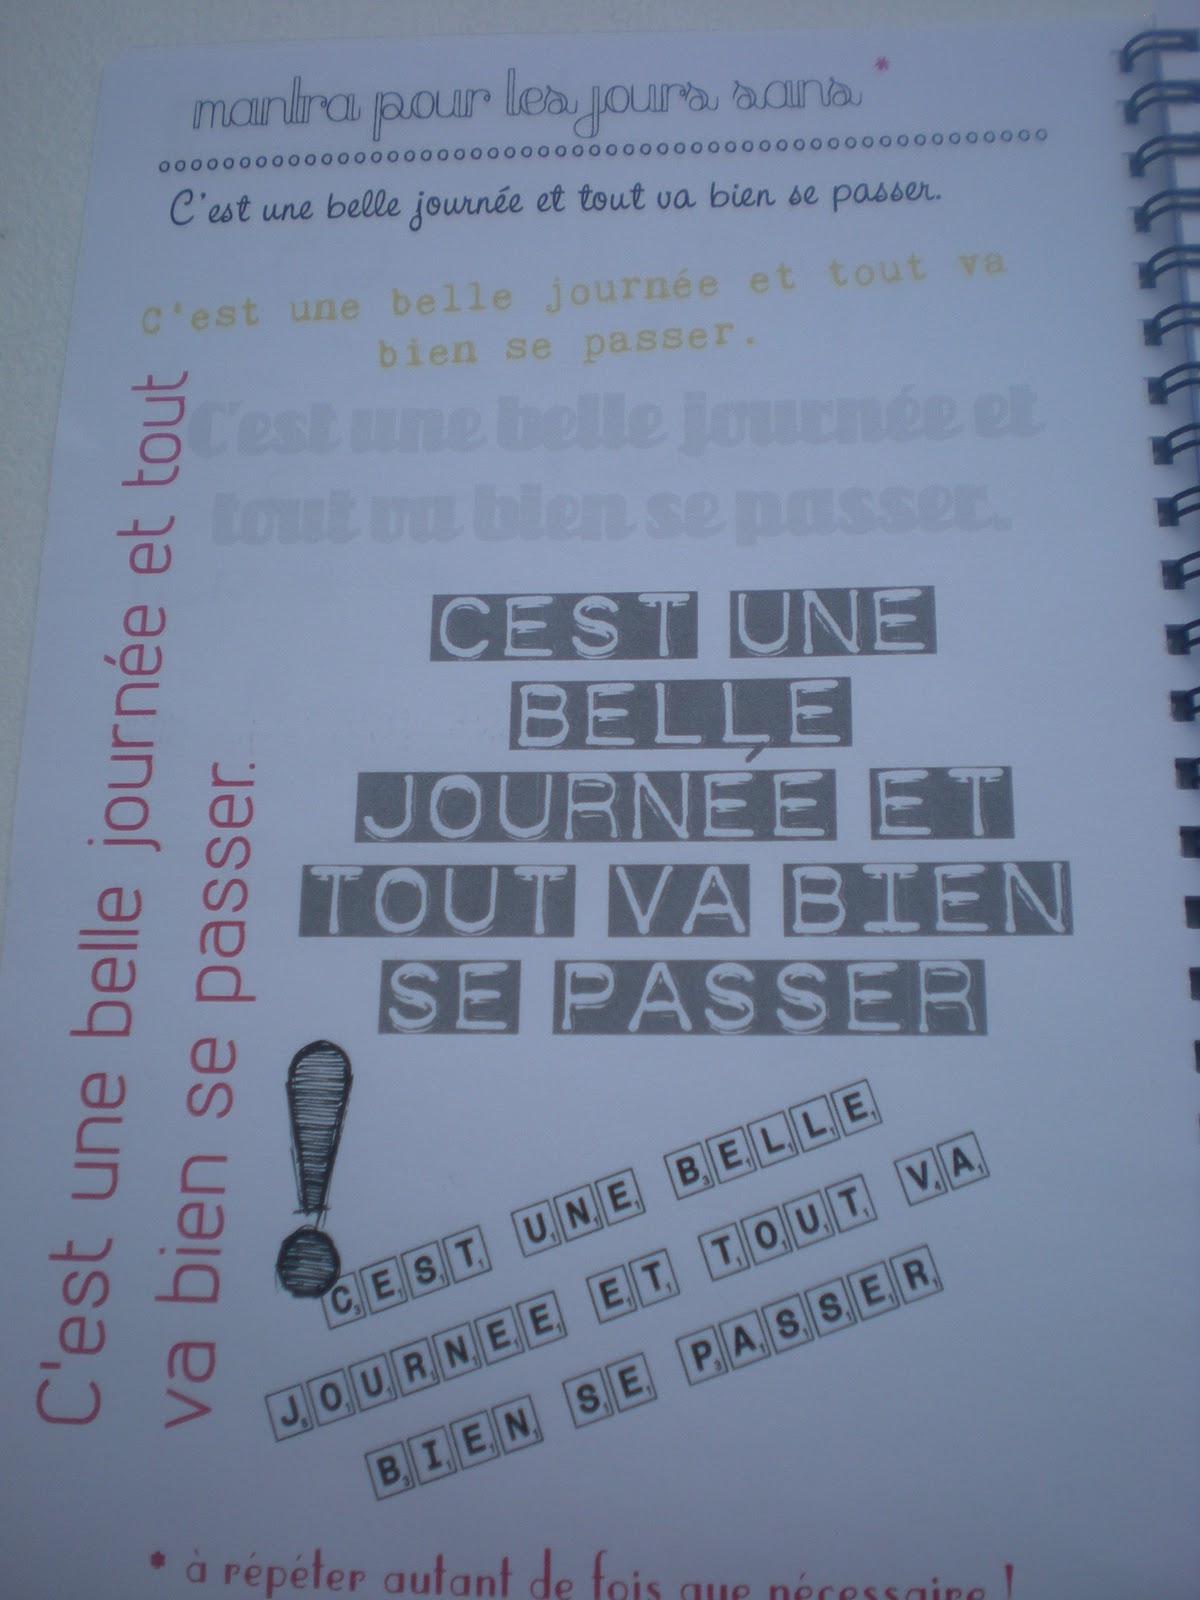 mantra pour les jours sans *
C'est une belle journée et tout va bien se passer.
C'est une belle journée et tout va
bien se passer.
C'est une belle journée et
tout va bien se passer.
C'est une belle journée et tout
va bien se passer.
CEST UNE
BELLE
JOURNÉE ET
TOUT VA BIEN
SE PASSER
!
CEST UNE BELLE
JOURNEE ET TOUT VA
BIEN SE PASSER
* à répéter autant de fois que nécessaire !